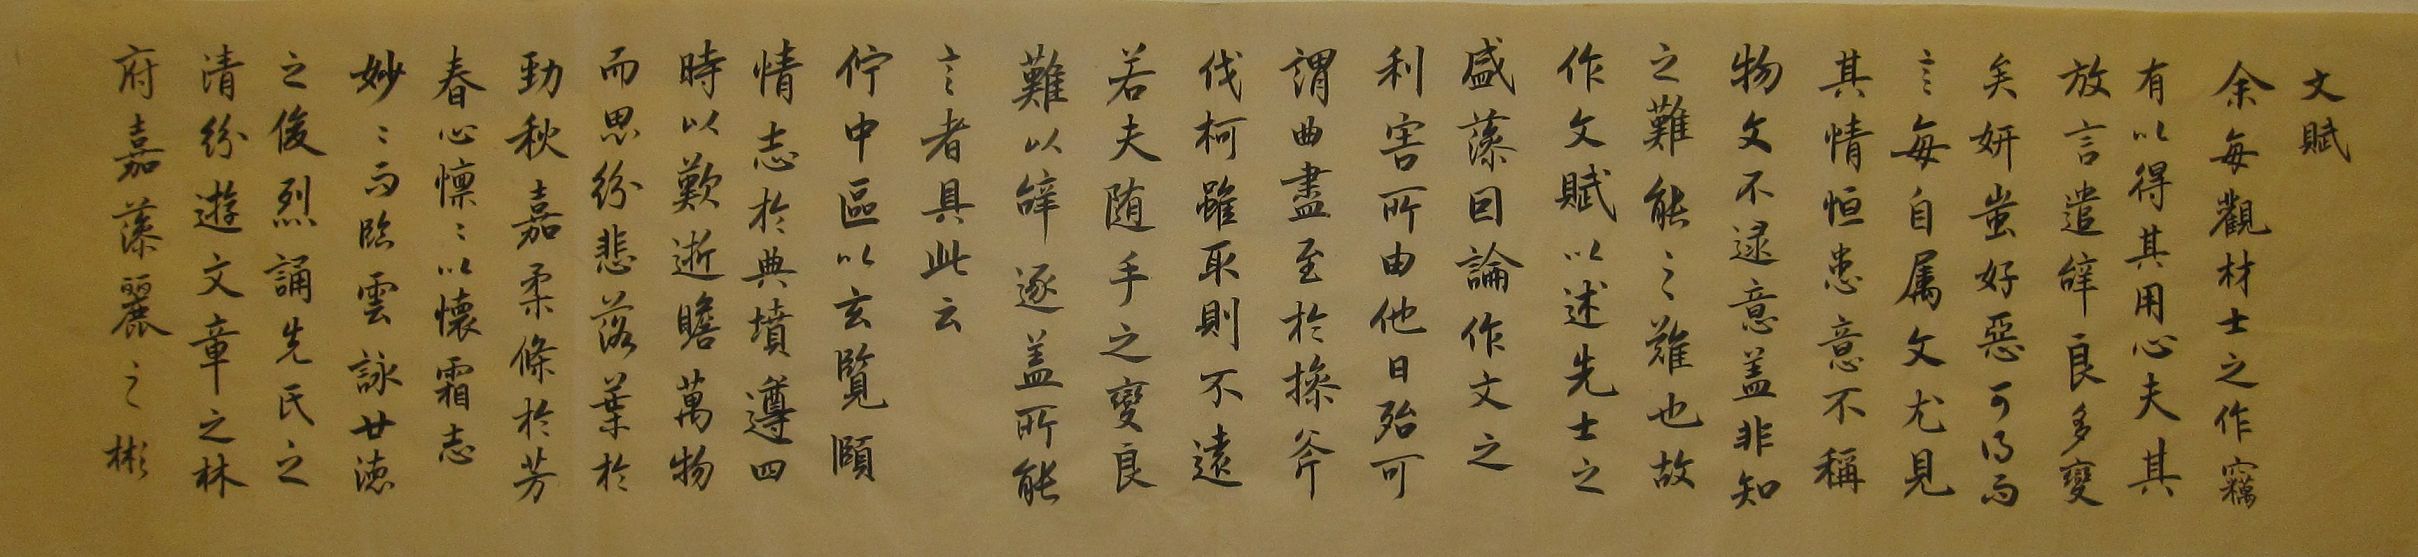 文賦
余每觀材士之作竊
有以得其用心夫其
放言遣辭良多變
矣妍蚩好惡可得而
言每自属文尤見
其情恒患意不稱
物文不逮意盖非知
之難能之難也故
作文賦以述先士之
盛藻因論作文之
利害所由他日殆可
謂曲盡至於操斧
伐柯雖取則不遠
若夫随手之變良
難以辭逐盖所能
言者具此云
佇中區以玄覽頤
情志於典墳遵四
時以歎逝瞻萬物
而思紛悲落葉於
勁秋嘉柔條於芳
春心懍〻以懷霜志
妙〻而臨雲詠世德
之俊烈誦先民之
清紛遊文章之林
府嘉藻麗之彬